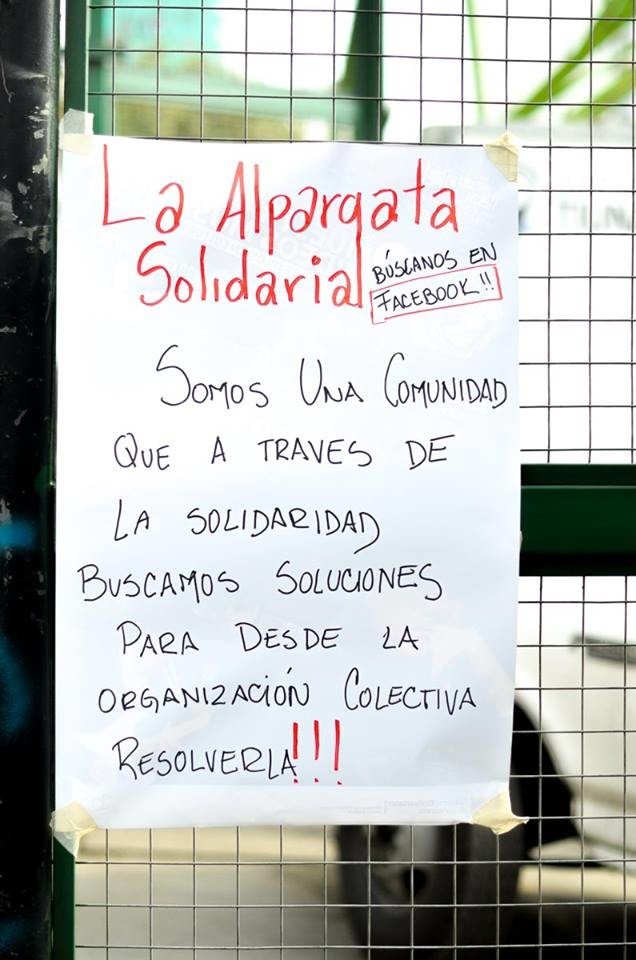 La Alpargata
Solidaria
BÚSCANOS EN
FACEBOOK!!
SOMOS UNA COMUNIDAD
QUE A TRAVES DE
LA SOLIDARIDAD
BUSCAMOS SOLUCIONES
PARA DESDE LA
ORGANIZACIÓN COLECTIVA
RESOLVERLA!!!